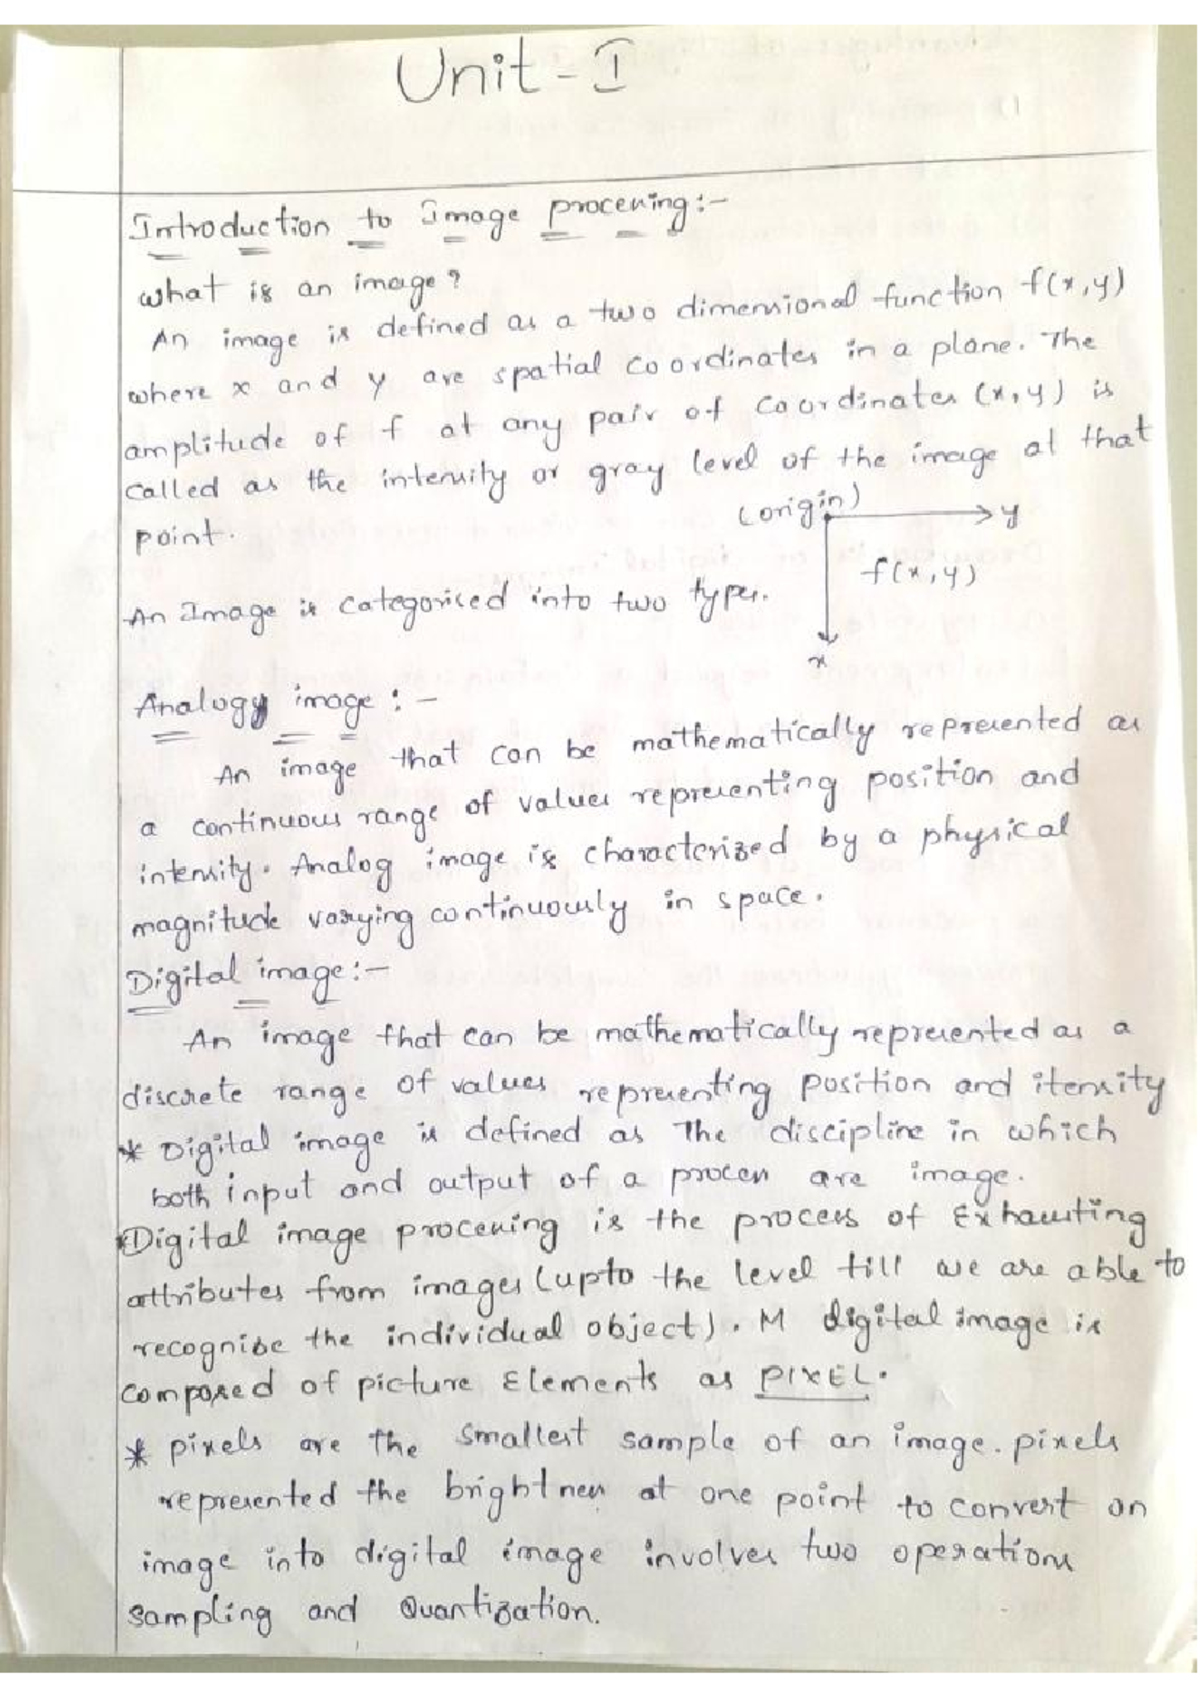 Unit - I
Introduction to Image processing:-
what is an image?
An image is defined as a two dimensional function f(x,y)
where x and y are spatial coordinates in a plane. The
amplitude of f at any pair of coordinates (x,y) is
called as the intensity or gray level of the image at that
point.
(origin)
y
f(x,y)
x
An Image is categorised into two types.
Analogy image :-
An image that can be mathematically represented as
a continuous range of values representing position and
intensity. Analog image is characterized by a physical
magnitude varying continuously in space.
Digital image:-
An image that can be mathematically represented as a
discrete range of values representing position and itensity
* Digital image is defined as The discipline in which
both input and output of a process are image.
*Digital image processing is the process of Exhausting
attributes from images (upto the level till we are able to
recognise the individual object). M digital image is
composed of picture Elements as PIXEL.
* pixels are the smallest sample of an image. pixels
represented the brightness at one point to convert an
image into digital image involves two operations
sampling and Quantization.